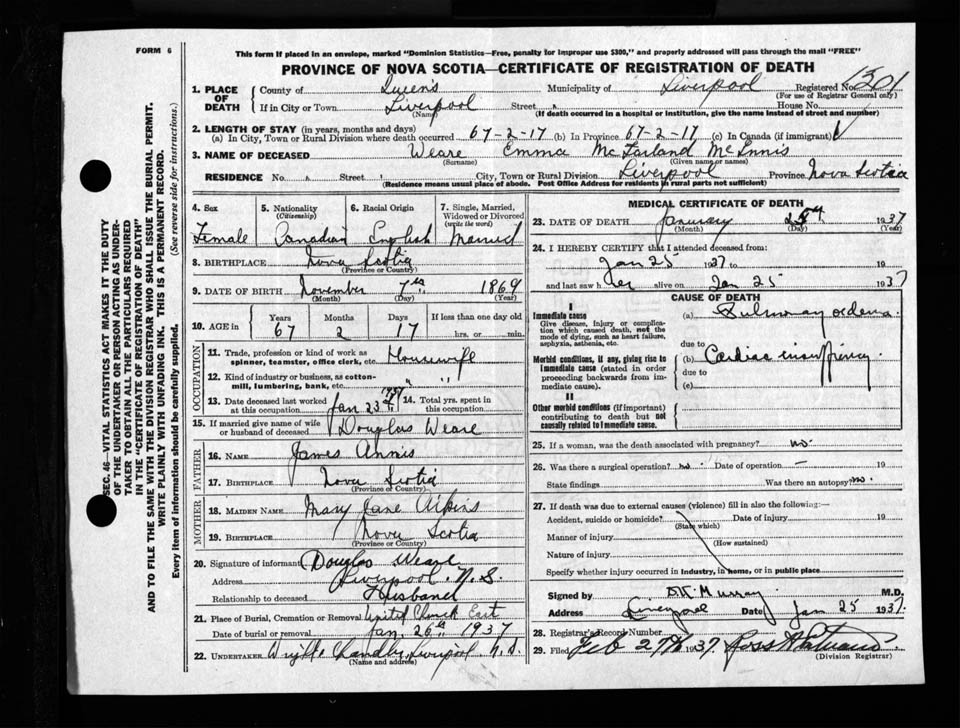 FORM 6
This form if placed in an envelope, marked "Dominion Statistics—Free, penalty for improper use $300," and properly addressed will pass through the mail "FREE"
PROVINCE OF NOVA SCOTIA—CERTIFICATE OF REGISTRATION OF DEATH
1. PLACE OF DEATH County of Queen's Municipality of Liverpool Registered No. 1301
(For use of Registrar General only)
If in City or Town Liverpool Street House No.
(Name) (If death occurred in a hospital or institution, give the name instead of street and number)
2. LENGTH OF STAY (in years, months and days)
(a) In City, Town or Rural Division where death occurred 67-2-17 (b) In Province 67-2-17 (c) In Canada (if immigrant)
3. NAME OF DECEASED Weare Emma McFarland McInnis
(Surname) (Given name or names)
RESIDENCE No. Street City, Town or Rural Division Liverpool Province Nova Scotia
(Residence means usual place of abode. Post Office Address for residents in rural parts not sufficient)
4. Sex Female
5. Nationality (Citizenship) Canadian
6. Racial Origin English
7. Single, Married, Widowed or Divorced (write the word) Married
8. BIRTHPLACE Nova Scotia
(Province or Country)
9. DATE OF BIRTH November 7th 1869
(Month) (Day) (Year)
10. AGE in Years Months Days If less than one day old
67 2 17 hrs. or min.
OCCUPATION
11. Trade, profession or kind of work as spinner, teamster, office clerk, etc. Housewife
12. Kind of industry or business, as cotton-mill, lumbering, bank, etc. " "
13. Date deceased last worked at this occupation Jan 23 1937
14. Total yrs. spent in this occupation
15. If married give name of wife or husband of deceased Douglas Weare
FATHER
16. NAME James Annis
17. BIRTHPLACE Nova Scotia
(Province or Country)
MOTHER
18. MAIDEN NAME Mary Jane
19. BIRTHPLACE Nova Scotia
(Province or Country)
20. Signature of informant Douglas Weare
Address Liverpool, N.S.
Relationship to deceased Husband
21. Place of Burial, Cremation or Removal United Church
Date of burial or removal Jan. 26th 1937
22. UNDERTAKER Liverpool N.S.
(Name and address)
MEDICAL CERTIFICATE OF DEATH
23. DATE OF DEATH January 1937
(Month) (Day) (Year)
24. I HEREBY CERTIFY that I attended deceased from:
Jan 25 1937 to 19
and last saw her alive on Jan 25 1937
CAUSE OF DEATH
I
Immediate cause
Give disease, injury or complication which caused death, not the mode of dying, such as heart failure, asphyxia, asthenia, etc.
(a) Pulmonary
due to
Morbid conditions, if any, giving rise to immediate cause (stated in order proceeding backwards from immediate cause).
(b) Cardiac insufficiency
due to
(c)
II
Other morbid conditions (if important) contributing to death but not causally related to immediate cause.
25. If a woman, was the death associated with pregnancy? no
26. Was there a surgical operation? no Date of operation — 19
State findings Was there an autopsy no.
27. If death was due to external causes (violence) fill in also the following:—
Accident, suicide or homicide? Date of injury 19
(State which)
Manner of injury
(How sustained)
Nature of injury
Specify whether injury occurred in industry, in home, or in public place
Signed by Murray M.D.
Address Liverpool Date Jan 25 1937
28. Registrar's Record Number
29. Filed Feb 1937.
(Division Registrar)
SEC. 46—VITAL STATISTICS ACT MAKES IT THE DUTY
OF THE UNDERTAKER OR PERSON ACTING AS UNDER-
TAKER TO OBTAIN ALL THE PARTICULARS REQUIRED
IN THE "CERTIFICATE OF REGISTRATION OF DEATH"
AND TO FILE THE SAME WITH THE DIVISION REGISTRAR WHO SHALL ISSUE THE BURIAL PERMIT.
WRITE PLAINLY WITH UNFADING INK. THIS IS A PERMANENT RECORD.
Every item of information should be carefully supplied. (See reverse side for instructions.)